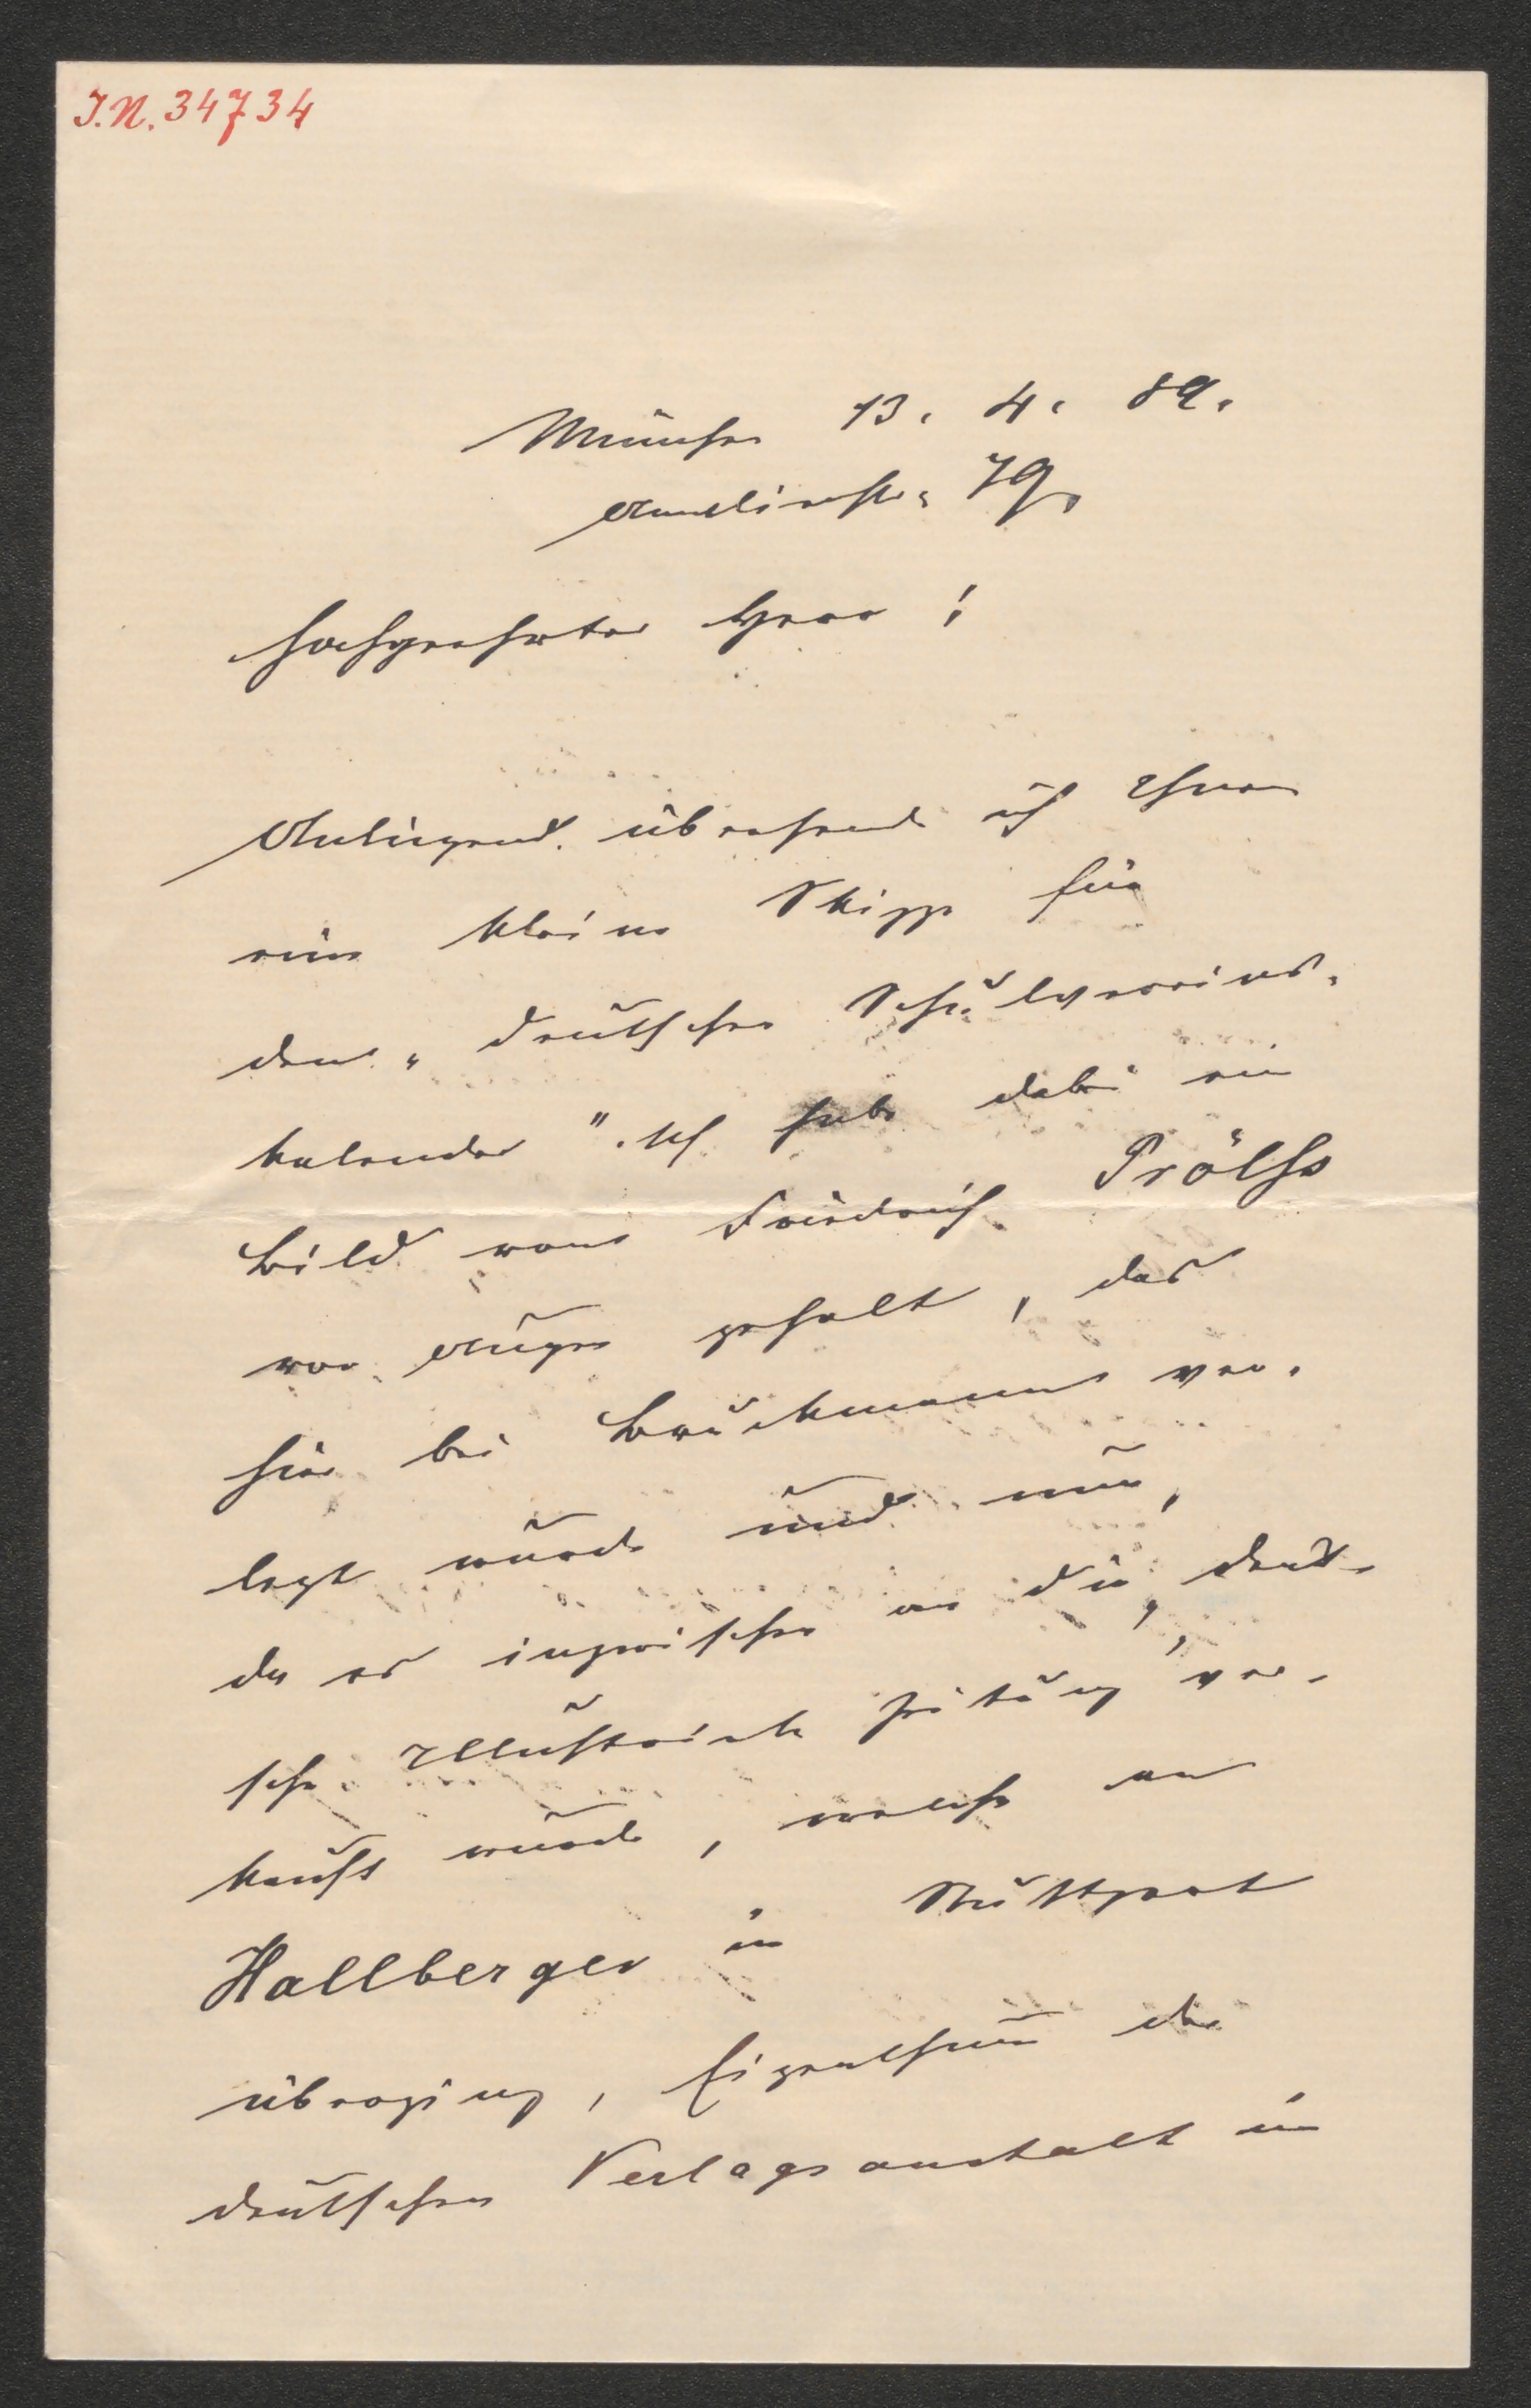 I.N. 34734
München 13. 4. 89.
Amalienstr. 79.
Hochgeehrter Herr!
Anliegend übersende ich Ihnen
eine kleine Skizze für
den „deutschen Schulvereins-
kalender". Ich habe dabei ein
Bild von Friedrich Prölss
vor Augen gehabt, das
hier bei Bruckmann ver-
legt wurde und nun,
da es inzwischen an die „deut-
sche Illustrirte Zeitung" ver-
kauft wurde, welche an
Hallberger in Stuttgart
überging, Eigenthum der
deutschen Verlagsanstalt in